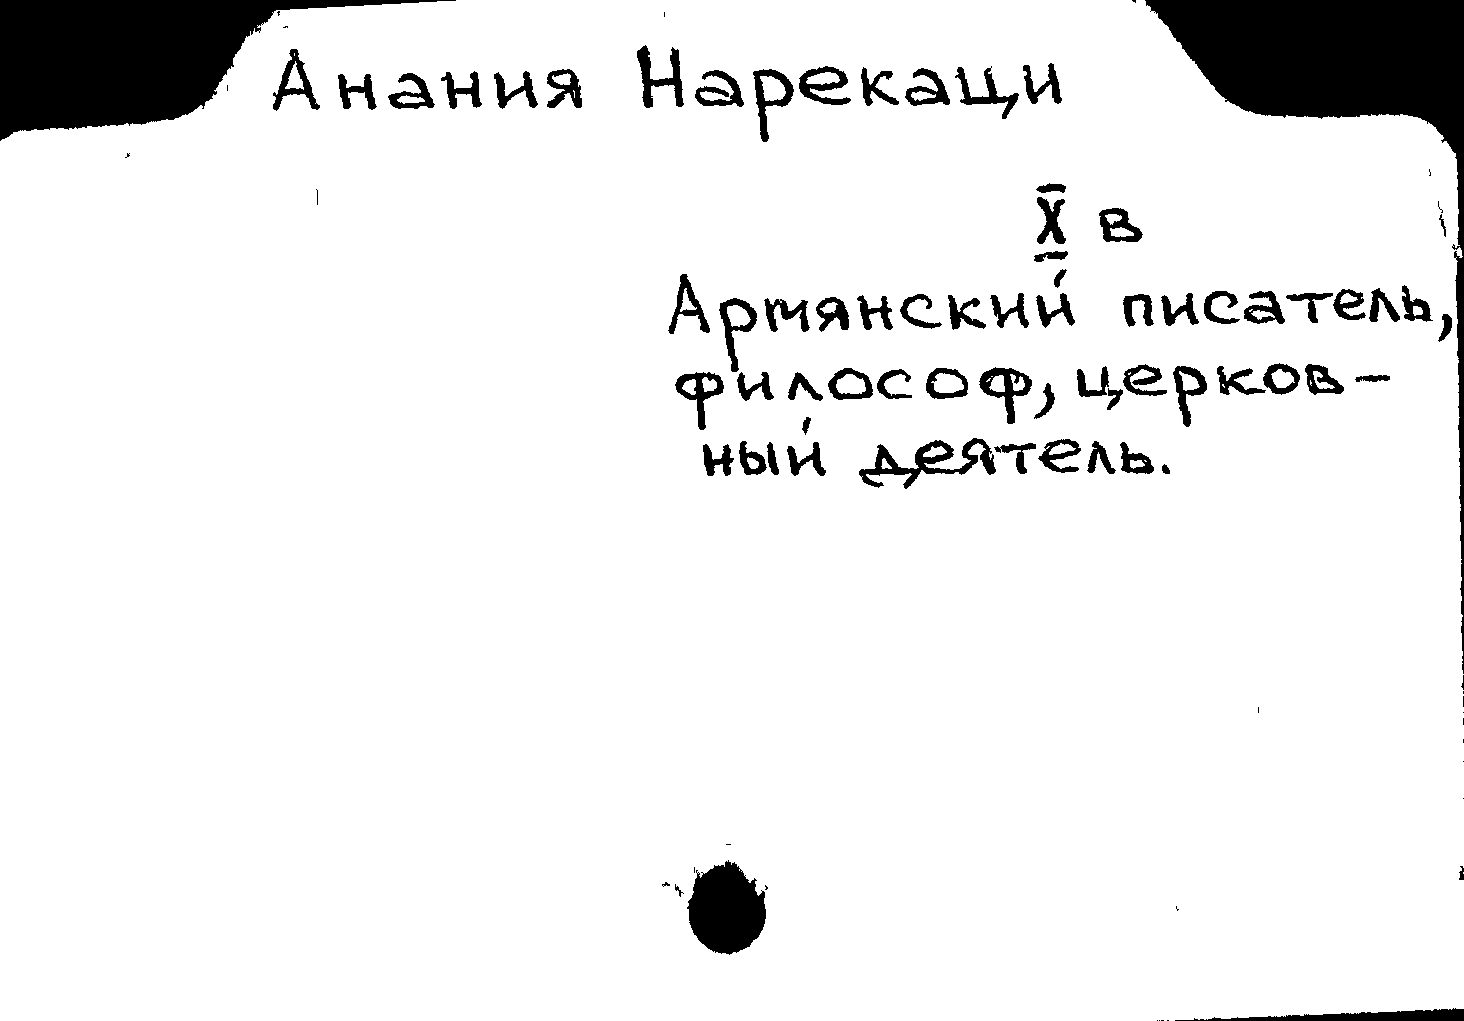 Анания Нарекаци
X в
Армянский писатель,
философ, церков-
ный деятель.